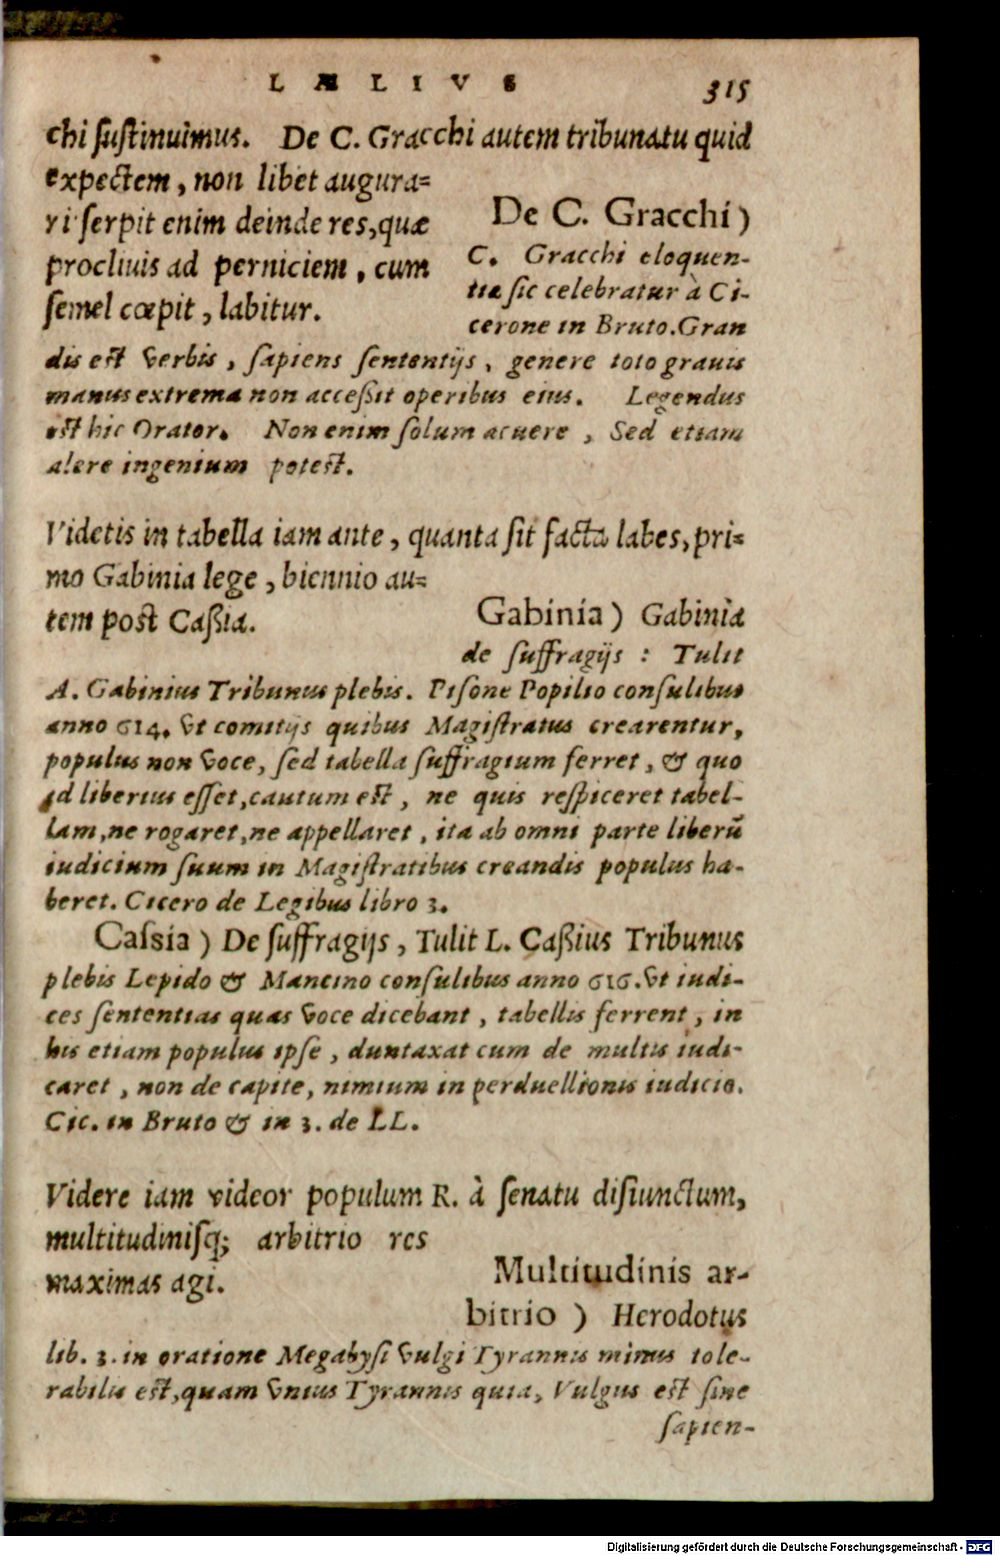 LÆLIVS 315
chi ſuſtinuimus. De C. Gracchi autem tribunatu quid
expectem, non libet augura=
ri ſerpit enim deinde res, quæ
procliuis ad perniciem, cum
ſemel cœpit, labitur.
De C. Gracchi)
C. Gracchi eloquen-
tia ſic celebratur à Ci-
cerone in Bruto. Gran
dis est verbis, ſapiens ſententijs, genere toto grauis
manus extrema non acceßit operibus eius. Legendus
est hic Orator. Non enim ſolum acuere, Sed etiam
alere ingenium potest.
Videtis in tabella iam ante, quanta ſit facta labes, pri=
mo Gabinia lege, biennio au=
tem post Caßia.
Gabinia) Gabinia
de ſuffragijs : Tulit
A. Gabinius Tribunus plebis. Piſone Popilio conſulibus
anno 614. vt comitijs quibus Magiſtratus crearentur,
populus non voce, ſed tabella ſuffragium ferret, & quo
id liberius eſſet, cautum est, ne quis reſpiceret tabel-
lam, ne rogaret, ne appellaret, ita ab omni parte liberū
iudicium ſuum in Magiſtratibus creandis populus ha-
beret. Cicero de Legibus libro 3.
Caſsia) De ſuffragijs, Tulit L. Caßius Tribunus
plebis Lepido & Mancino conſulibus anno 616. vt iudi-
ces ſententias quas voce dicebant, tabellis ferrent, in
his etiam populus ipſe, duntaxat cum de multis iudi-
caret, non de capite, nimium in perduellionis iudicio.
Cic. in Bruto & in 3. de LL.
Videre iam videor populum R. à ſenatu diſiunctum,
multitudiniſq; arbitrio res
maximas agi.
Multitudinis ar-
bitrio ) Herodotus
lib. 3. in oratione Megabyſi vulgi Tyrannis minus tole-
rabilis est, quam vnius Tyrannis quia, Vulgus est ſine
ſapien-
Digitalisierung gefördert durch die Deutsche Forschungsgemeinschaft - DFG